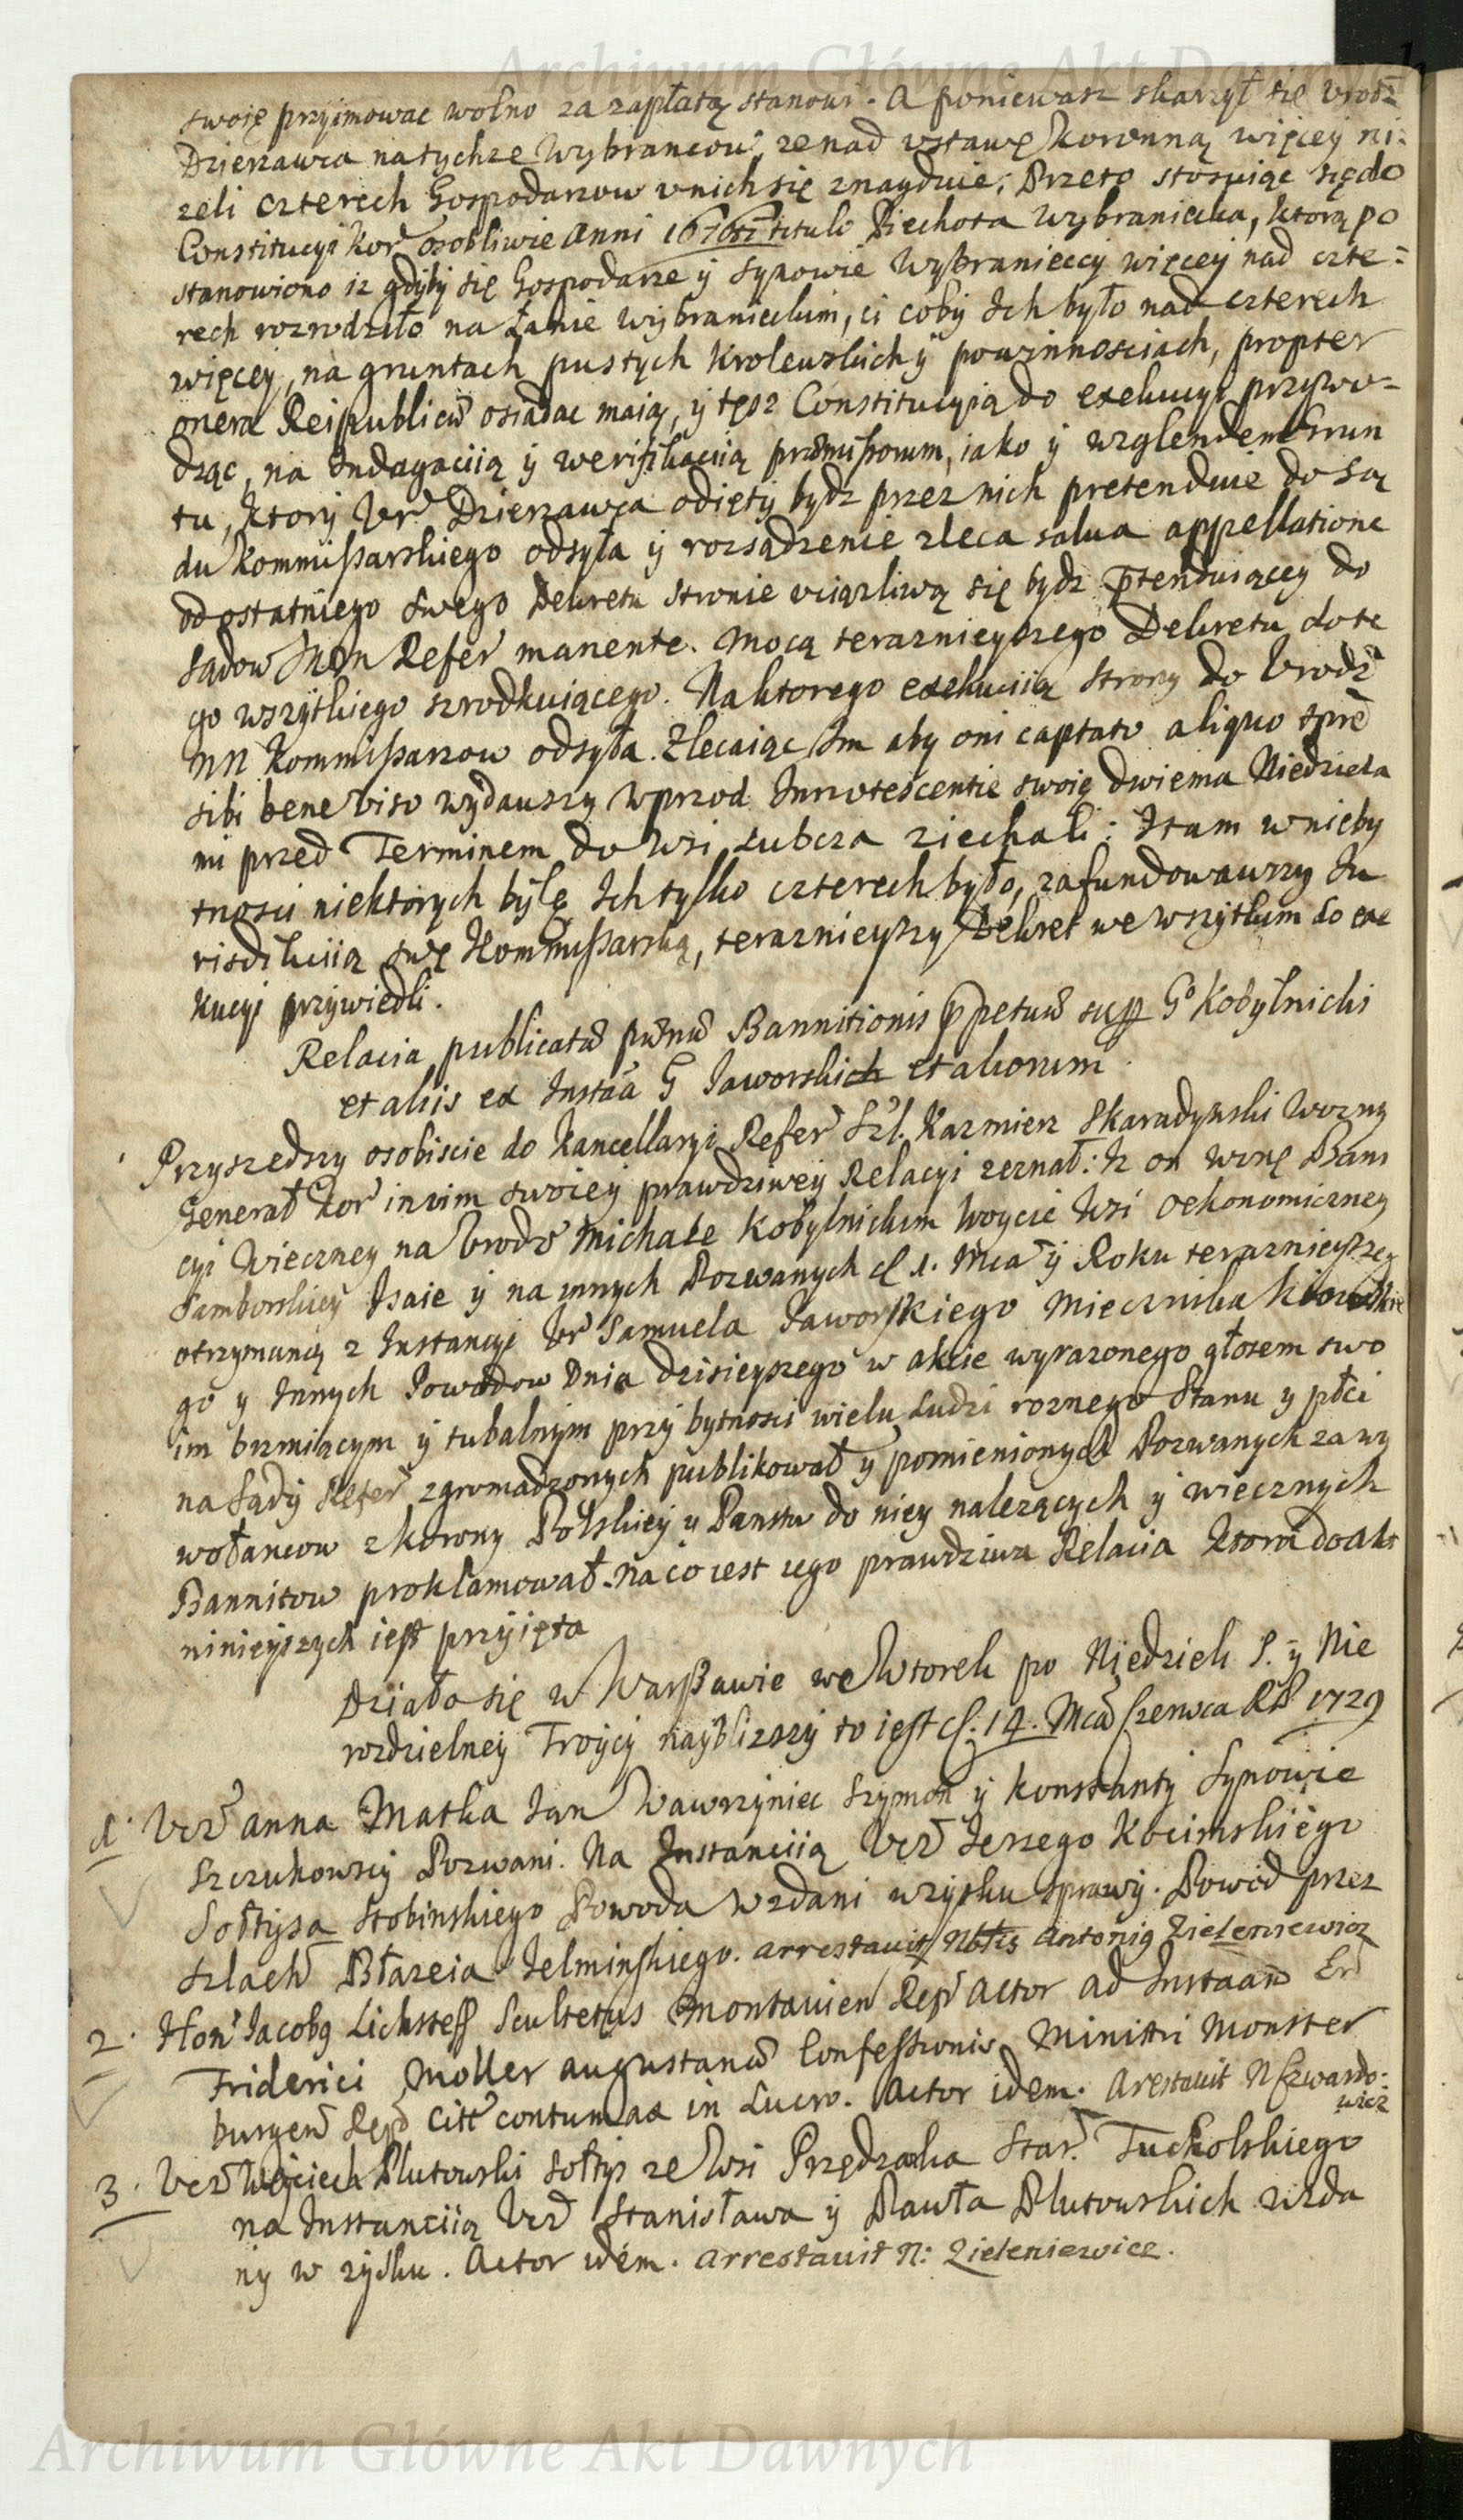 Archiwum Główne Akt Dawnych
swoię przyimowac wolno za zapłatą stanowi. A poniewasz skarzył się Urodz=
Dzierzawca natychze Wybrancow, ze nad ustawę Koronną więcey ni:
zeli czterech Gospodarzow u nich się znayduie; Przeto stosuiąc się do
Constitucyi Kor osobliwie Anni 1676 tituli Piechota Wybraniecka, ktorą po
stanowiono iz gdyby się Gospodarze ÿ Synowie Wybranieccy więcey nad czte=
rech rozrodziło na Łanie wybranieckim, ci coby Ich było nad czterech
więcey, na gruntach pustych Krolewskich ÿ powinnosciach, propter
onera Reipublicæ osiadac maią, ÿ tęsz Constitucyią do exekucyi przywo=
dząc, na Indagaciią ÿ werifikaciią præmissorum, iako ÿ wzglendem Grun
tu, ktory Ur Dzierzawca odięty bydz przez nich pretenduie do Są
du Kommissarskiego odsyła ÿ rozsądzenie zleca salva appellatione
od ostatniego swego Dekretu stronie uciązliwą się bydz ptenduiącey do
Sądow Refer manente. Mocą teraznieyszego Dekretu do te
go wszytkiego szrodkuiącego. Na ktorego exekuciią strony do Urodz
NN Kommissarzow odsyła. Zlecaiąc Im aby oni captato aliquo tpre
sibi bene viso wydawszy wprzod Innotescentie swoię dwiema Niedziela
mi przed Terminem do Wsi Łubcza ziechali; I tam w nieby
tnosci niektorych bylę Ich tylko czterech było, zafundowawszy Ju
risdikciią swę Kommissarską, teraznieyszy Dekret we wszytkim do exe
kucyi przywiedli.
Relacia publicatæ pænæ Bannitionis ppetuæ sup G Kobylnicki
et aliis ex Instaa G Jaworskich et aliorum
Przyszedszy osobiscie do Kancellaryi Refer Szl. Kazmierz Skaradynski Wozny
Generał Kor in vim swoiey prawdziwey Relacyi zeznał: Iz on winę Bani
cyi Wieczney na Urodz Michale Kobylnickim Woycie Wsi Oekonomiczney
Samborskiey Isaie ÿ na innych Pozwanych d 1. Mca ÿ Roku teraznieyszeg
otrzymaną z Instancyi Ur Samuela Jaworskiego Miecznika Kiowskie
go y Innych Powodow Dnia dzisieyszego w akcie wyrazonego głosem swo
im brzmiącym ÿ tubalnym przy bytnosci wielu Ludzi roznego Stanu y płci
na Sądy Refer zgromadzonych publikował ÿ pomienionych Pozwanych za wy
wołancow z Korony Polskiey y Panstw do niey nalezących ÿ wiecznych
Bannitow proklamował. Na co iest iego prawdziwa Relacia ktora do Akt
ninieyszych iest przyięta
Działo się w Warszawie we Wtorek po Niedzieli S. ÿ Nie
rozdzielney Troycy naybliszszy to iest d: 14. Mca Czerwca R 1729
1. Ur Anna Matka Jan Wawrzyniec Szymon ÿ Konstanty Synowie
Szczukowscy Pozwani. Na Instanciią Ur Jerzego Kocimskiego
Sołtysa Stobinskiego Powoda wzdani w zysku sprawy. Powod przez
Szlach Błazeia Jelminskiego. arrestavit Nblis Antonig Zieleniewicz
2. Hon Jacobg Lichsteff Scultetus Montavien Rep Actor ad Instaam
Friderici Moller Augustanæ Confessionis Ministri Monster
burgen Rep Citt contumax in Lucro. Actor idem. Arestavit N Czwardo:
wicz
3. Ur Woyciech Plutowski Sołtys ze Wsi Przędzaka Star. Tucholskiego
na Instanciią Ur Stanisława ÿ Pawła Plutowskich wzda
ny w zysku. Actor idem. arrestavit N: Zieleniewicz.
Archiwum Główne Akt Dawnych